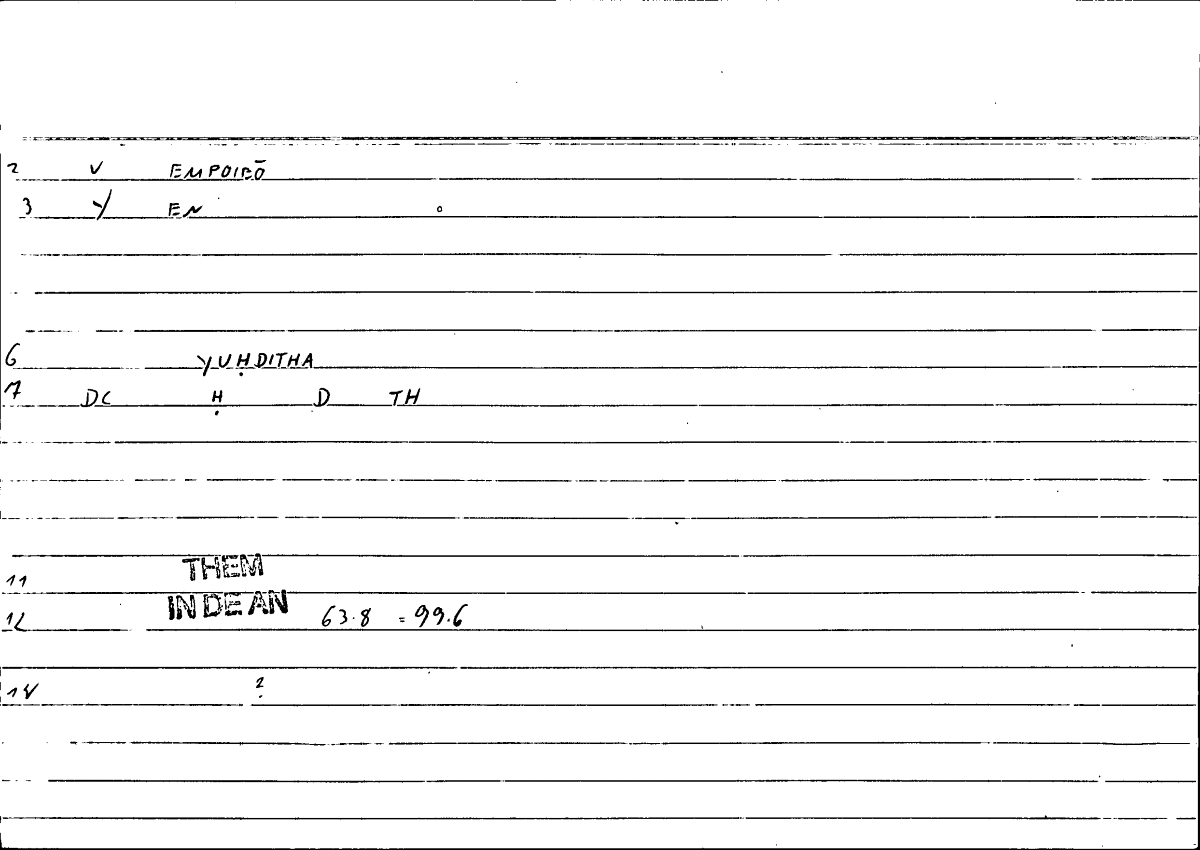 2 V EMPOIEŌ
3 Y EN
6 YUḤDITHA
7 DC Ḥ D TH
THEM
11
IN DE AN
12 63.8 = 99.6
14 2